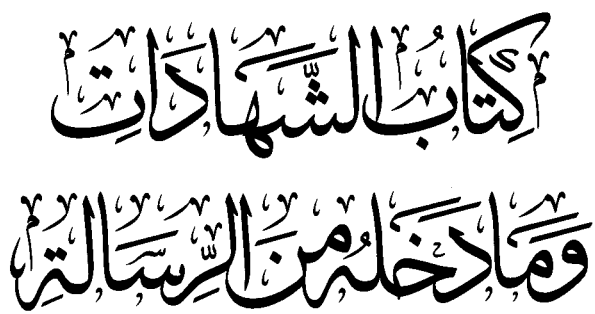 كِتَابُ الشَّهَادَاتِ
وَمَا دَخَلَهُ مِنَ الرِّسَالَةِ